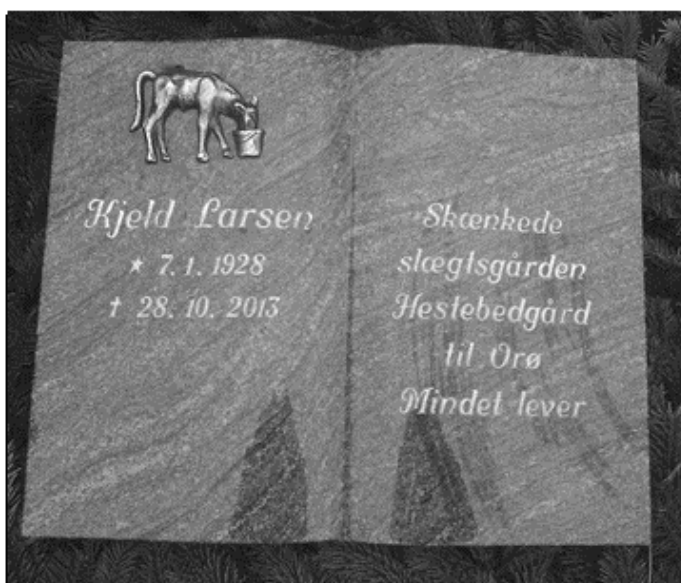 Kjeld Larsen
★ 7. 1. 1928
† 28. 10. 2013
Skænkede
slægtsgården
Hestebedgård
til Orø
Mindet lever